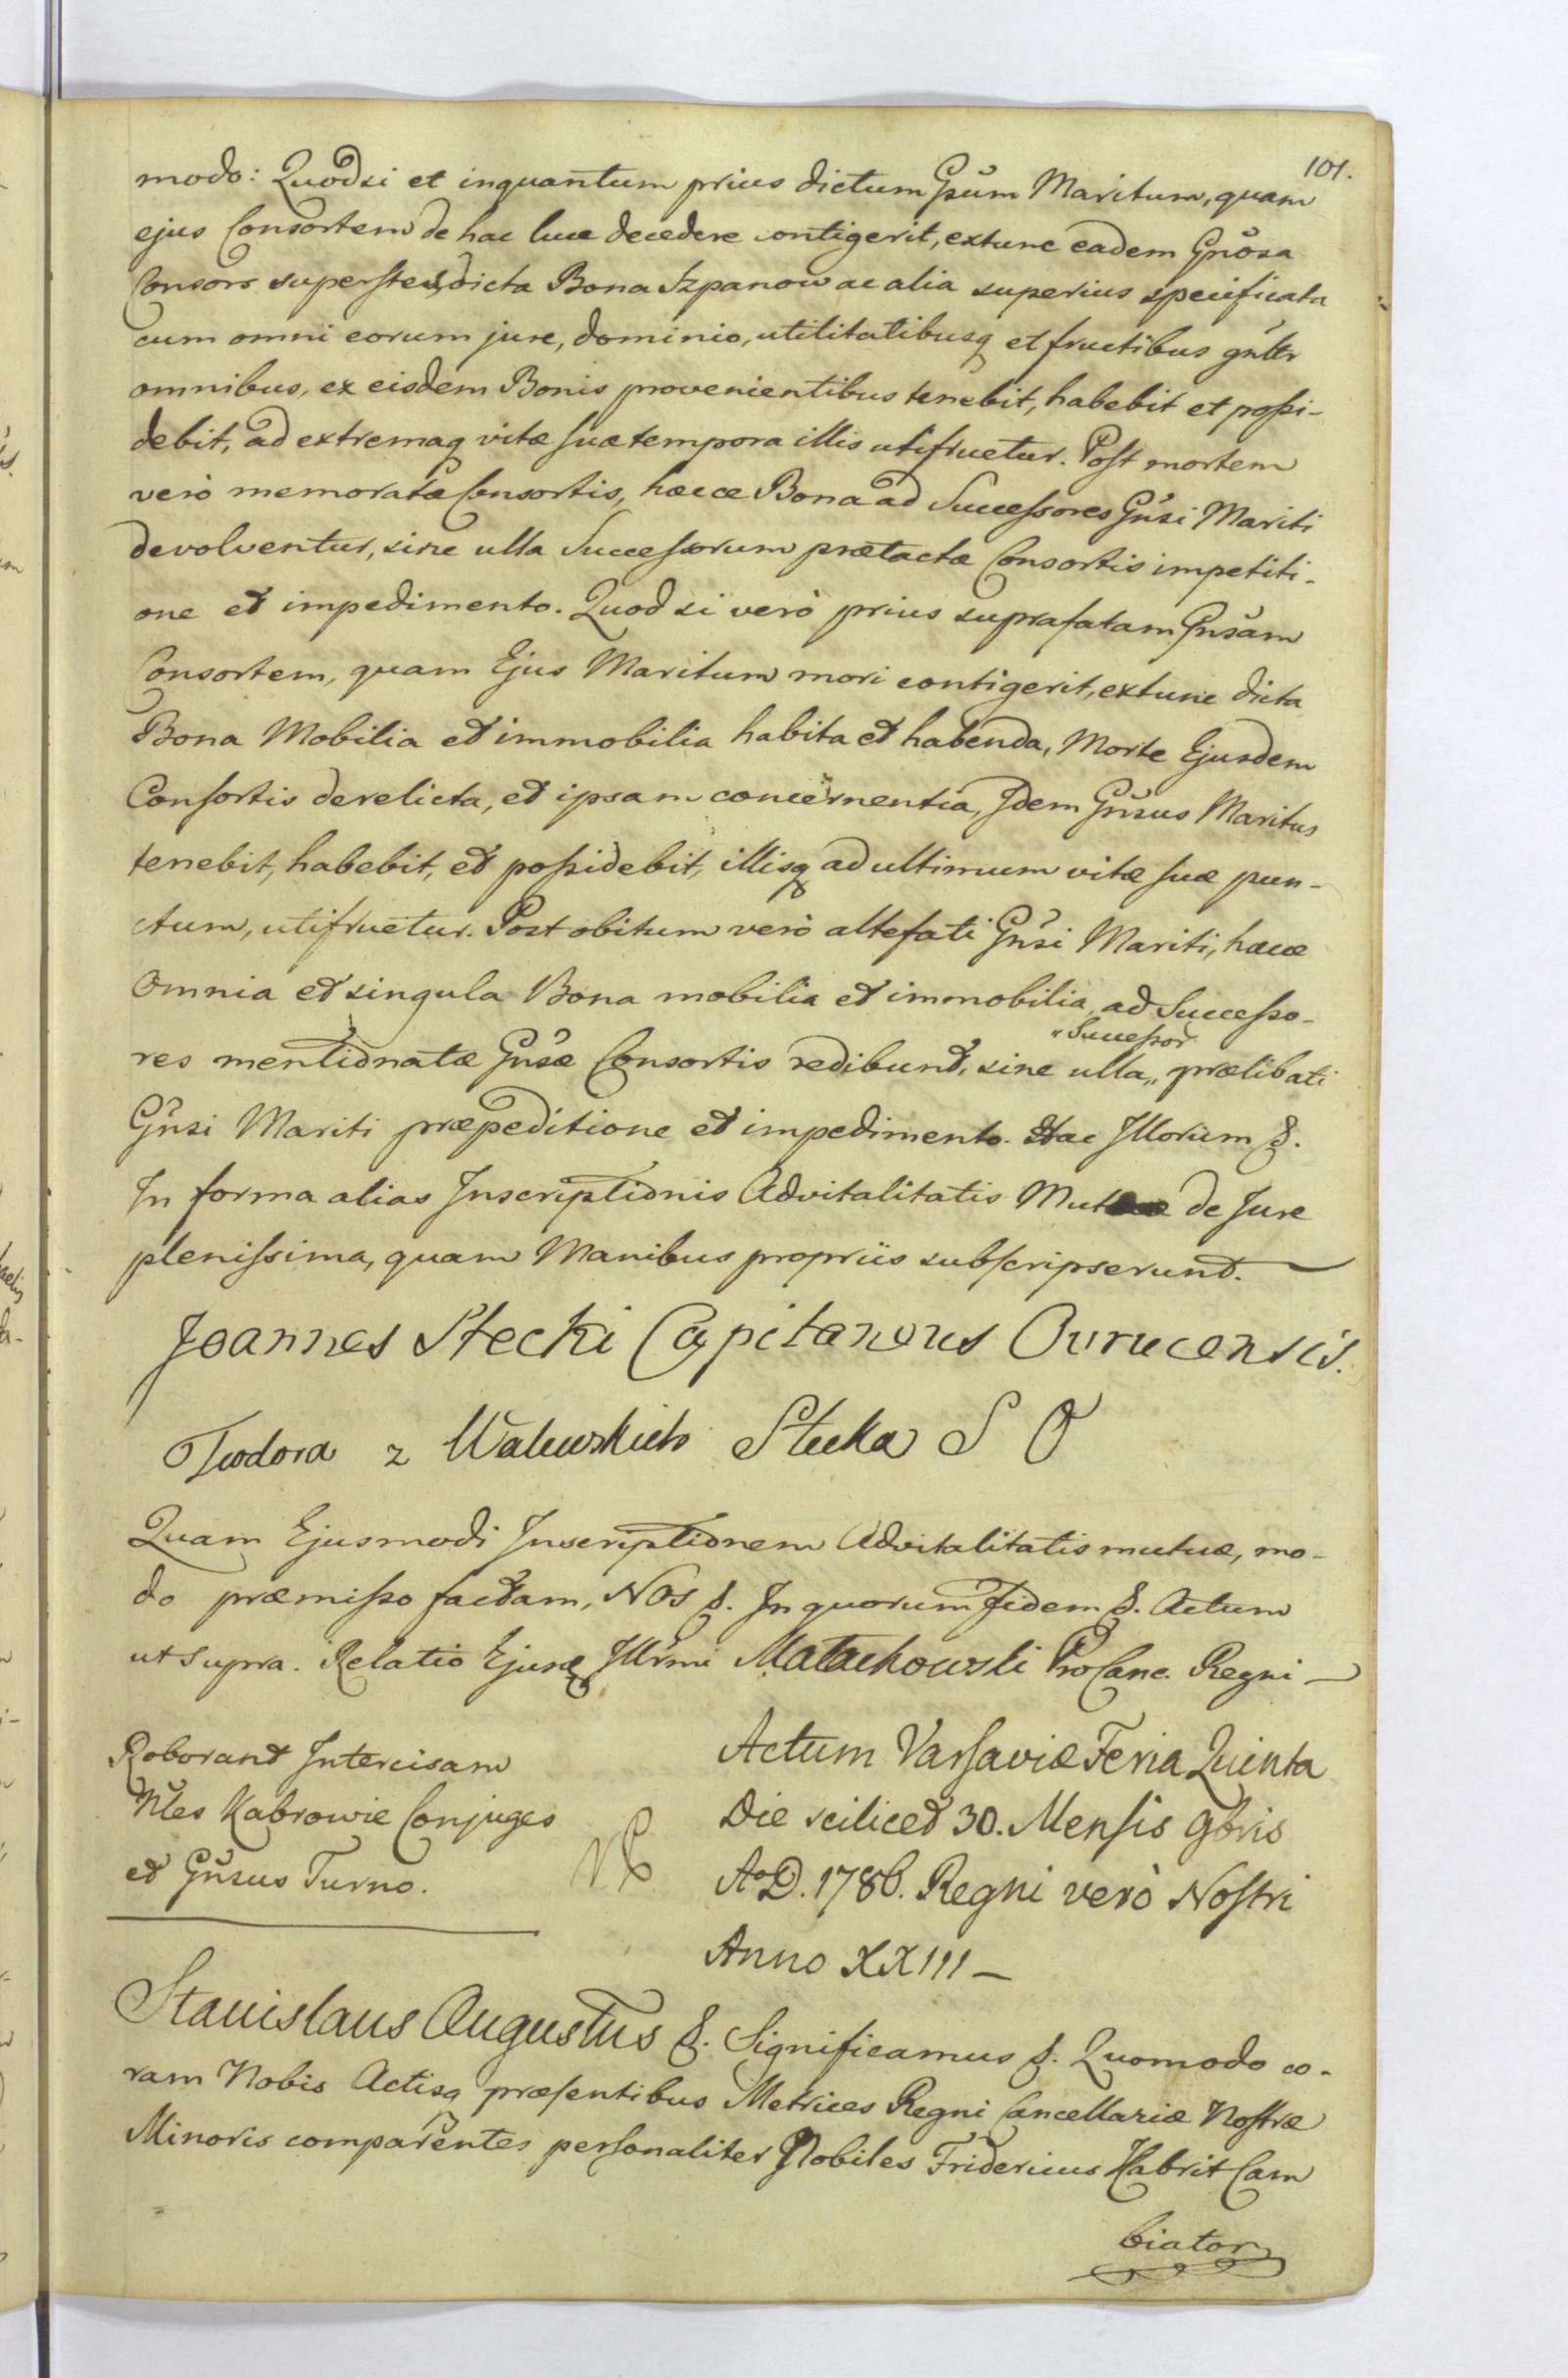 101.
modo: Quodsi et inquantum prius dictum Gsum Maritum, quam
ejus Consortem de hac luce decedere contigerit, extunc eadem Gnosa
Consors superstes, dicta Bona Szpanow ac alia superius specificata
cum omni eorum jure, dominio, utilitatibusq et fructibus gnltr
omnibus, ex eisdem Bonis provenientibus tenebit, habebit et possi-
debit, ad extremaq vitæ suæ tempora illis utifruetur. Post mortem
verò memoratæ Consortis, hæcce Bona ad Successores Gnsi Mariti
devolventur, sine ulla Successorum prætactæ Consortis impetiti-
one et impedimento. Quod si verò prius suprafatam Gnsam
Consortem, quam Ejus Maritum mori contigerit, extunc dicta
Bona Mobilia et immobilia habita et habenda, Morte Ejusdem
Consortis derelicta, et ipsam concernentia, Idem Gnsus Maritus
tenebit, habebit, et possidebit, illisq ad ultimum vitæ suæ pun-
ctum, utifruetur. Post obitum verò altefati Gnsi Mariti, hæcce
Omnia et singula Bona mobilia et immobilia ad Successo-
res mentionatæ Gnsæ Consortis redibunt, sine ulla „ Successor „ prælibati
Gnsi Mariti præpeditione et impedimento. Hac Illorum &.
In forma alias Inscriptionis Advitalitatis Mutuæ de Jure
plenissima, quam Manibus propriis subscripserunt.
Joannes Stecki Capitaneus Ovrucensis.
Teodora z Walewskich Stecka S O
Quam Ejusmodi Inscriptionem Advitalitatis mutuæ, mo-
do præmisso factam, Nos &. In quorum fidem &. Actum
ut supra. Relatio Ejusq Illrmi Małachowski ProCanc. Regni
Roborant Intercisam
Nles Kabrowie Conjuges
et Gnsus Turno.
Actum Varsaviæ Feria Quinta
Die scilicet 30. Mensis 9bris
AoD. 1786. Regni verò Nostri
Anno XXIII
Stanislaus Augustus &. Significamus &. Quomodo co-
ram Nobis Actisq præsentibus Metrices Regni Cancellariæ Nostræ
Minoris comparentes personaliter Nobiles Fridericus Kabrit Cam
biator